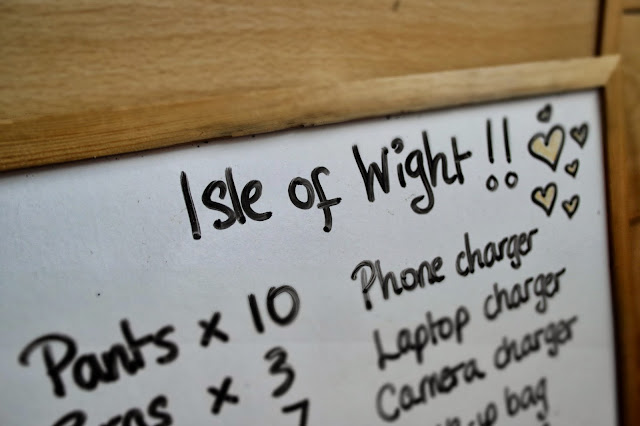 Isle of Wight !!
Pants x 10
x 3
7
Phone charger
Laptop charger
Camera charger
bag